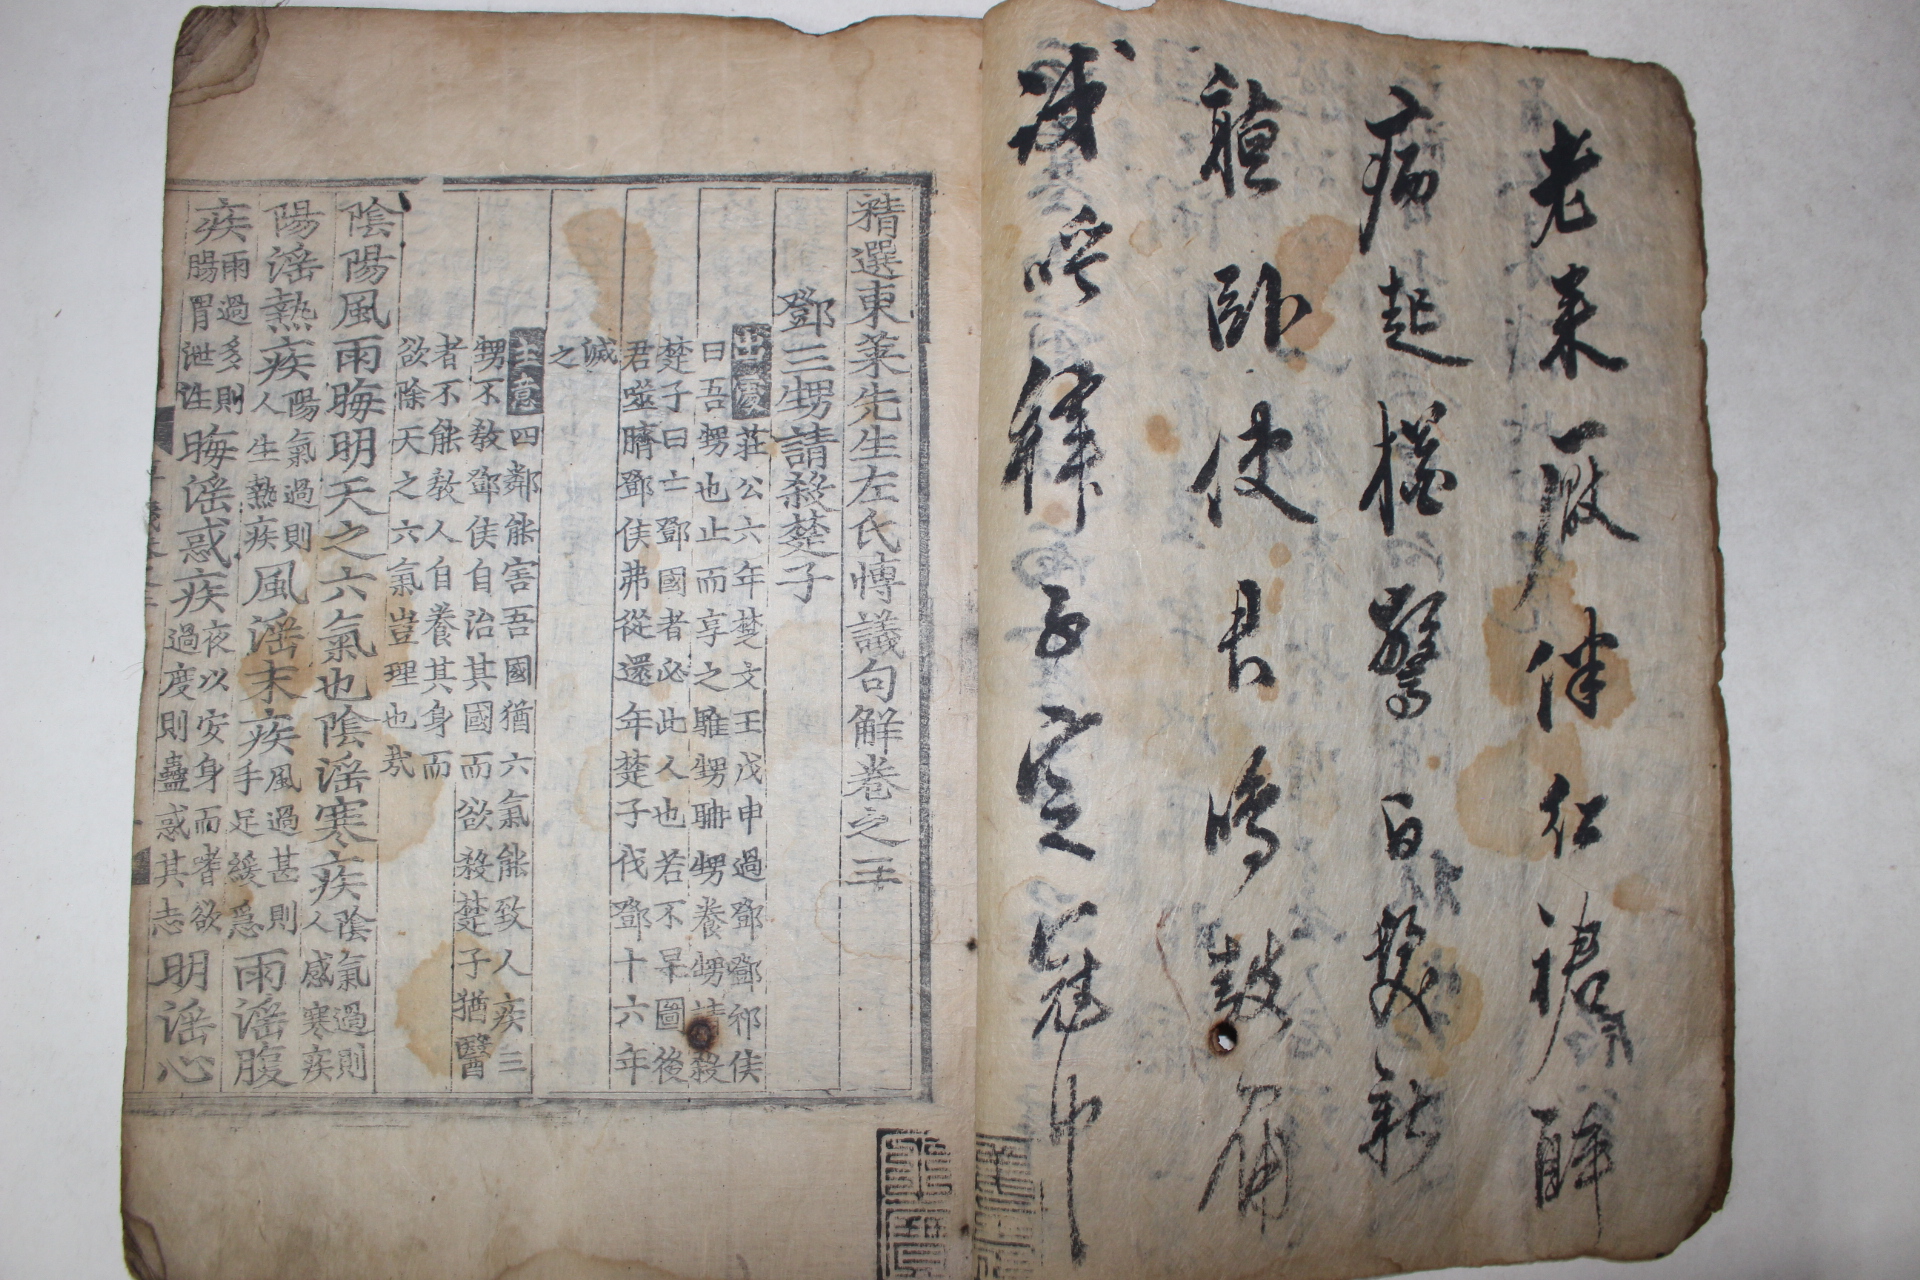 老來一﨑伴仁裙醉
病起
聽臥使君鳴鼓角
試呼稺子整冠巾
精選東萊先生左氏博議句解卷之三
鄧三甥請殺楚子
出處莊公六年楚文王戊申過鄧鄧祁侯
曰吾甥也止而享之騅甥聃甥養甥請殺
楚子曰亡鄧國者必此人也若不早圖後
君噬臍鄧侯弗從還年楚子伐鄧十六年
滅
之
主意四鄰能害吾國猶六氣能致人疾三
甥不教鄧侯自治其國而欲殺楚子猶醫
者不能教人自養其身而
欲除天之六氣豈理也㢤
陰陽風雨晦明天之六氣也陰淫寒疾陰氣過則人感寒疾
陽淫熱疾陽氣過則人生熱疾風淫末疾風過甚則手足緩急雨淫腹
疾雨過多則腸胃泄注晦淫惑疾夜以安身而嗜欲過度則蠱惑其志明淫心